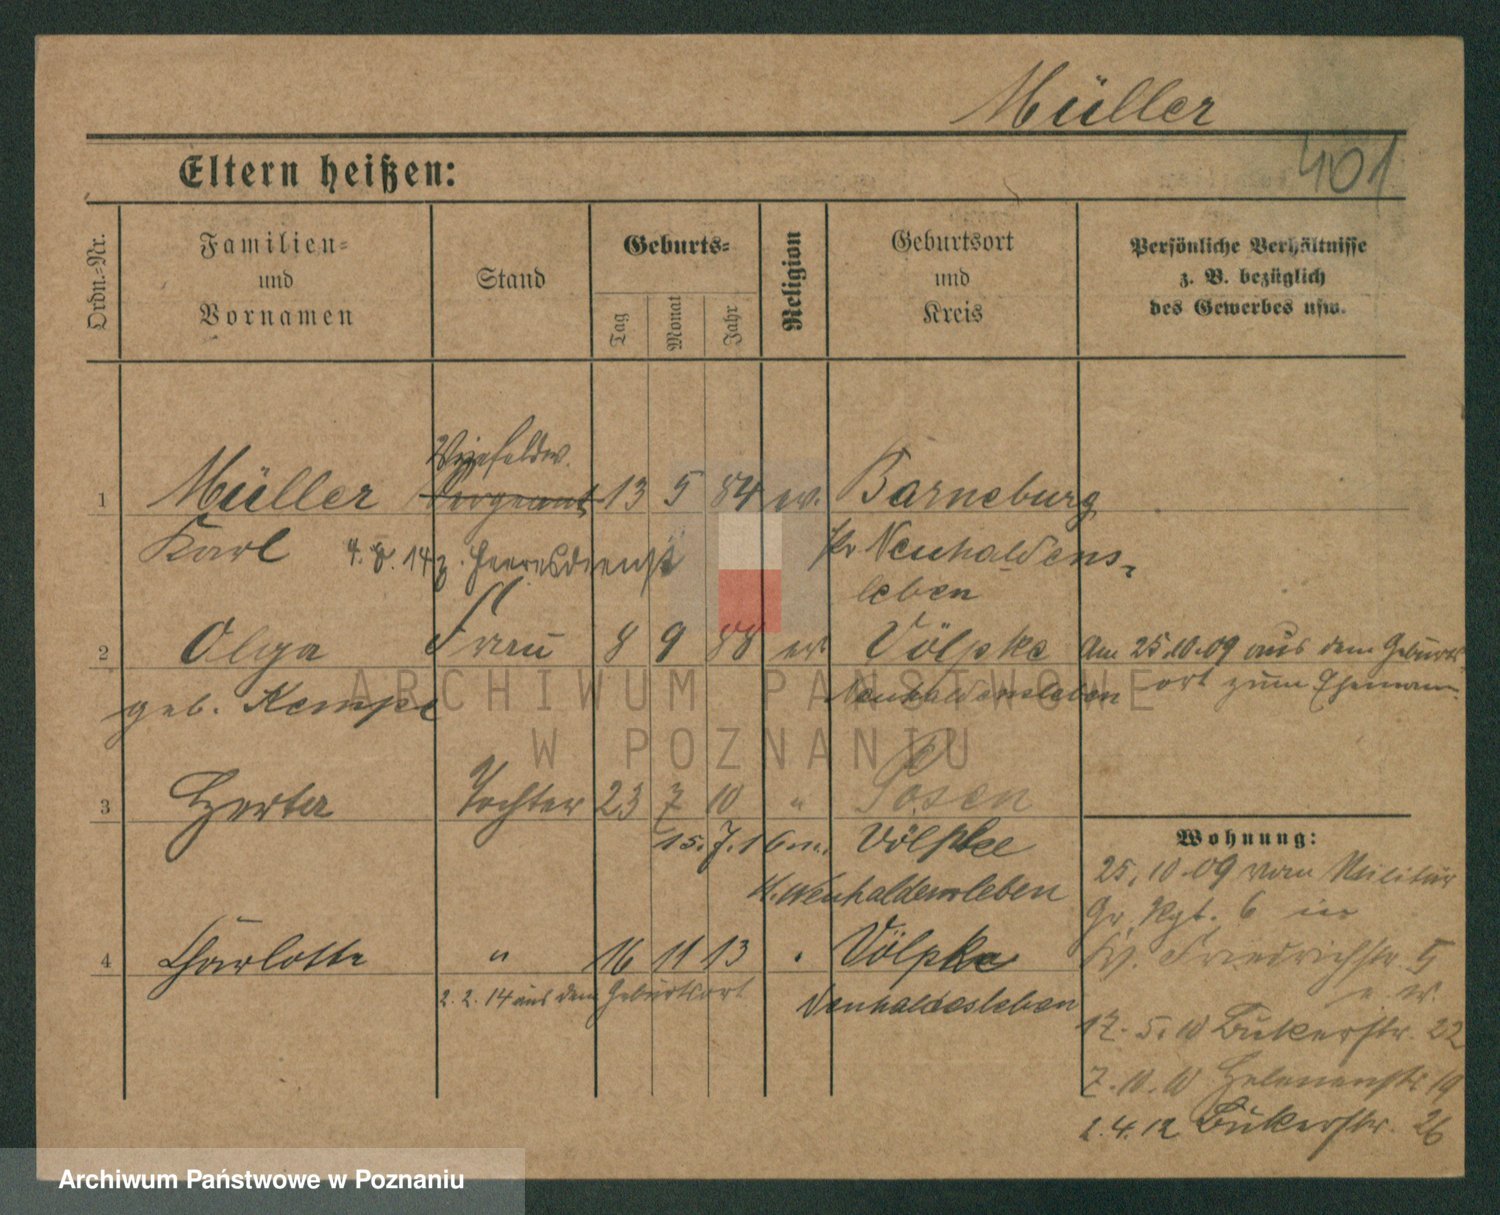 Müller
401
Eltern heißen:
Ordn.-Nr.
Familien-
und
Vornamen
Stand
Geburts-
Tag
Monat
Jahr
Religion
Geburtsort
und
Kreis
Persönliche Verhältnisse
z. B. bezüglich
des Gewerbes usw.
Vizefeldw.
1 Müller Sergeant 13 5 84 ev. Barneburg
Karl 4. 8. 14 z. Heeresdienst Kr Neuhaldens-
leben
2 Olga Frau 8 9 88 ev Völpke Am 25.10.09 aus dem Geburts-
geb. Kempe Neuhaldensleben ort zum Ehemann
3 Herta Tochter 23 7 10 " Posen
15. 7. 16 n. Völpke
Kr. Neuhaldensleben
4 Charlotte " 16 11 13 " Völpke
2. 2. 14 aus dem Geburtsort Neuhaldesleben
Wohnung:
25.10.09 vom Militär
Gr. Rgt. 6 in
W. Friedrichstr. 5
17. 5. 10 Bukerstr. 22
7. 10. 10 Helenenstr 19
2. 4. 12 Bukerstr. 26
ARCHIWUM PAŃSTWOWE
W POZNANIU
Archiwum Państwowe w Poznaniu